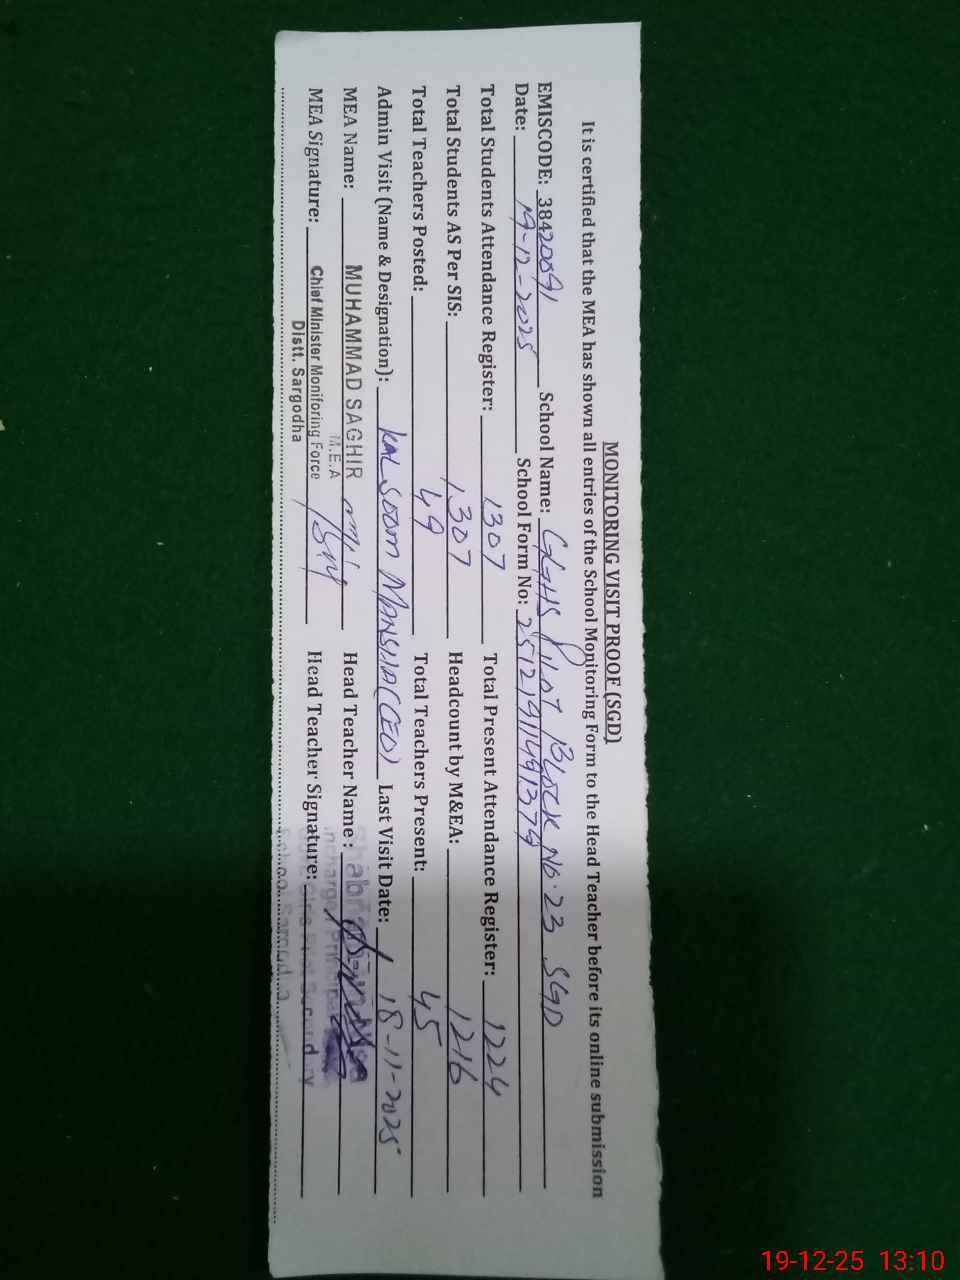 MONITORING VISIT PROOF (SGD)
It is certified that the MEA has shown all entries of the School Monitoring Form to the Head Teacher before its online submission
EMISCODE: 38420091 School Name: GGHS Pilot Block No. 23 SGD
Date: 19-12-2025 School Form No: 25121911491379
Total Students Attendance Register: 1307 Total Present Attendance Register: 1224
Total Students AS Per SIS: 1307 Headcount by M&EA: 1216
Total Teachers Posted: 49 Total Teachers Present: 45
Admin Visit (Name & Designation): Kalsoom Mansha (CEO) Last Visit Date: 18-11-2025
MEA Name: MUHAMMAD SAGHIR Head Teacher Name:
M.E.A Incharge Principal
MEA Signature: Chief Minister Monitoring Force Head Teacher Signature: Girls Pilot Secondary
Distt. Sargodha School Sargodha
19-12-25 13:10